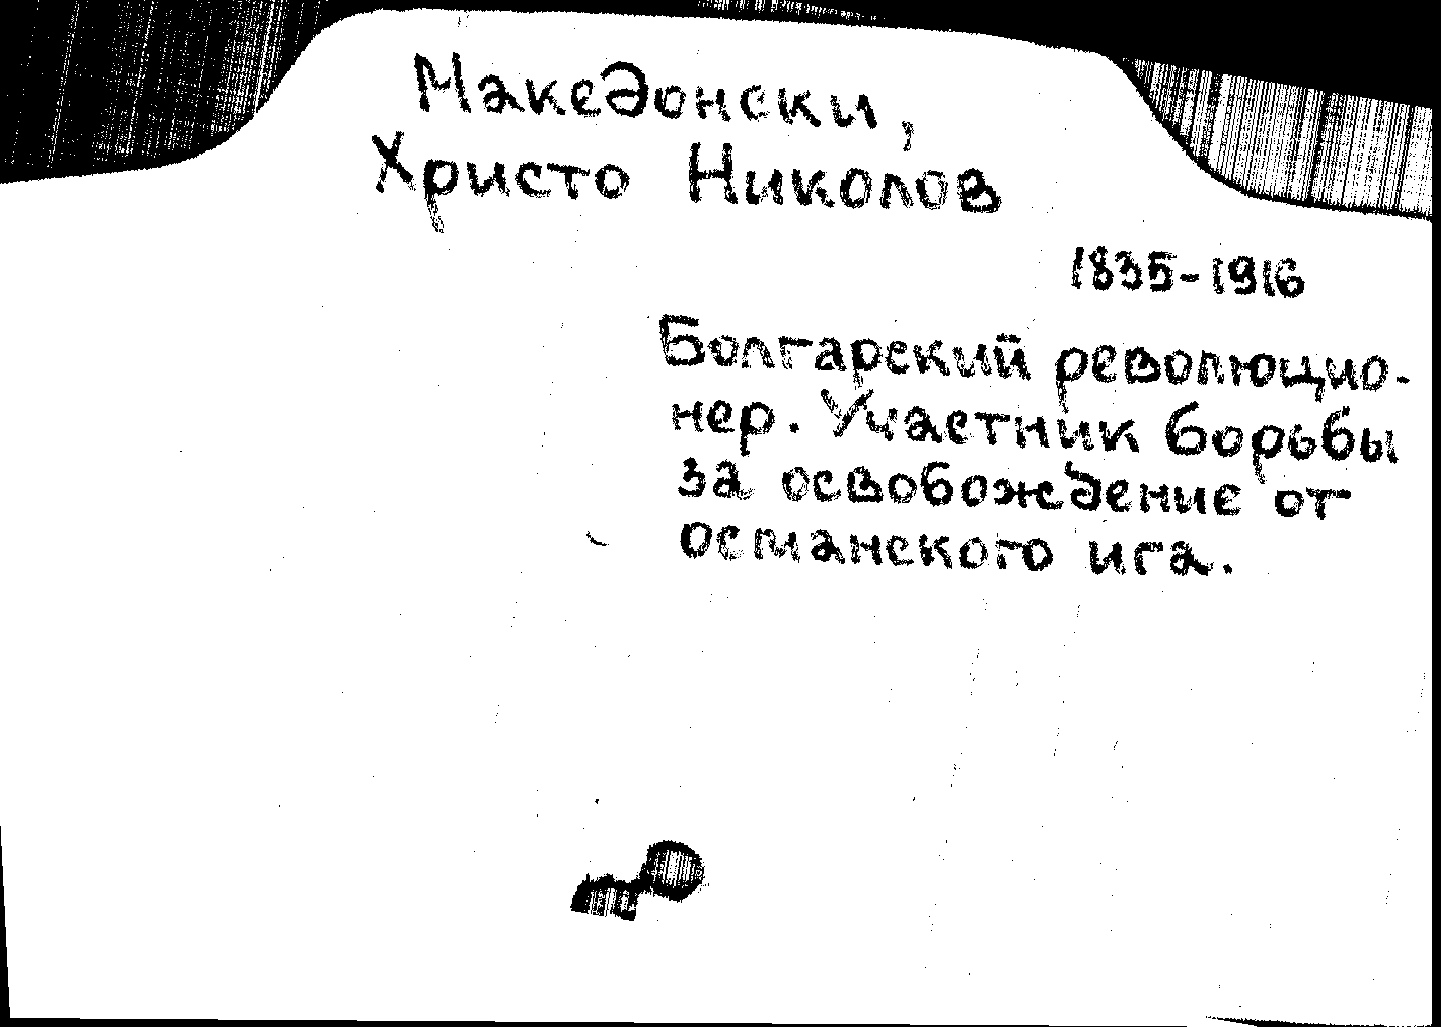 Македонски,
Христо Николов
1835-1916
Болгарский революцио-
нер. Участник борьбы
за освобождение от
османского ига.